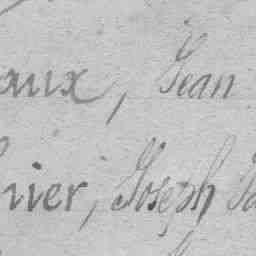 aux, Jean
nier, Joseph